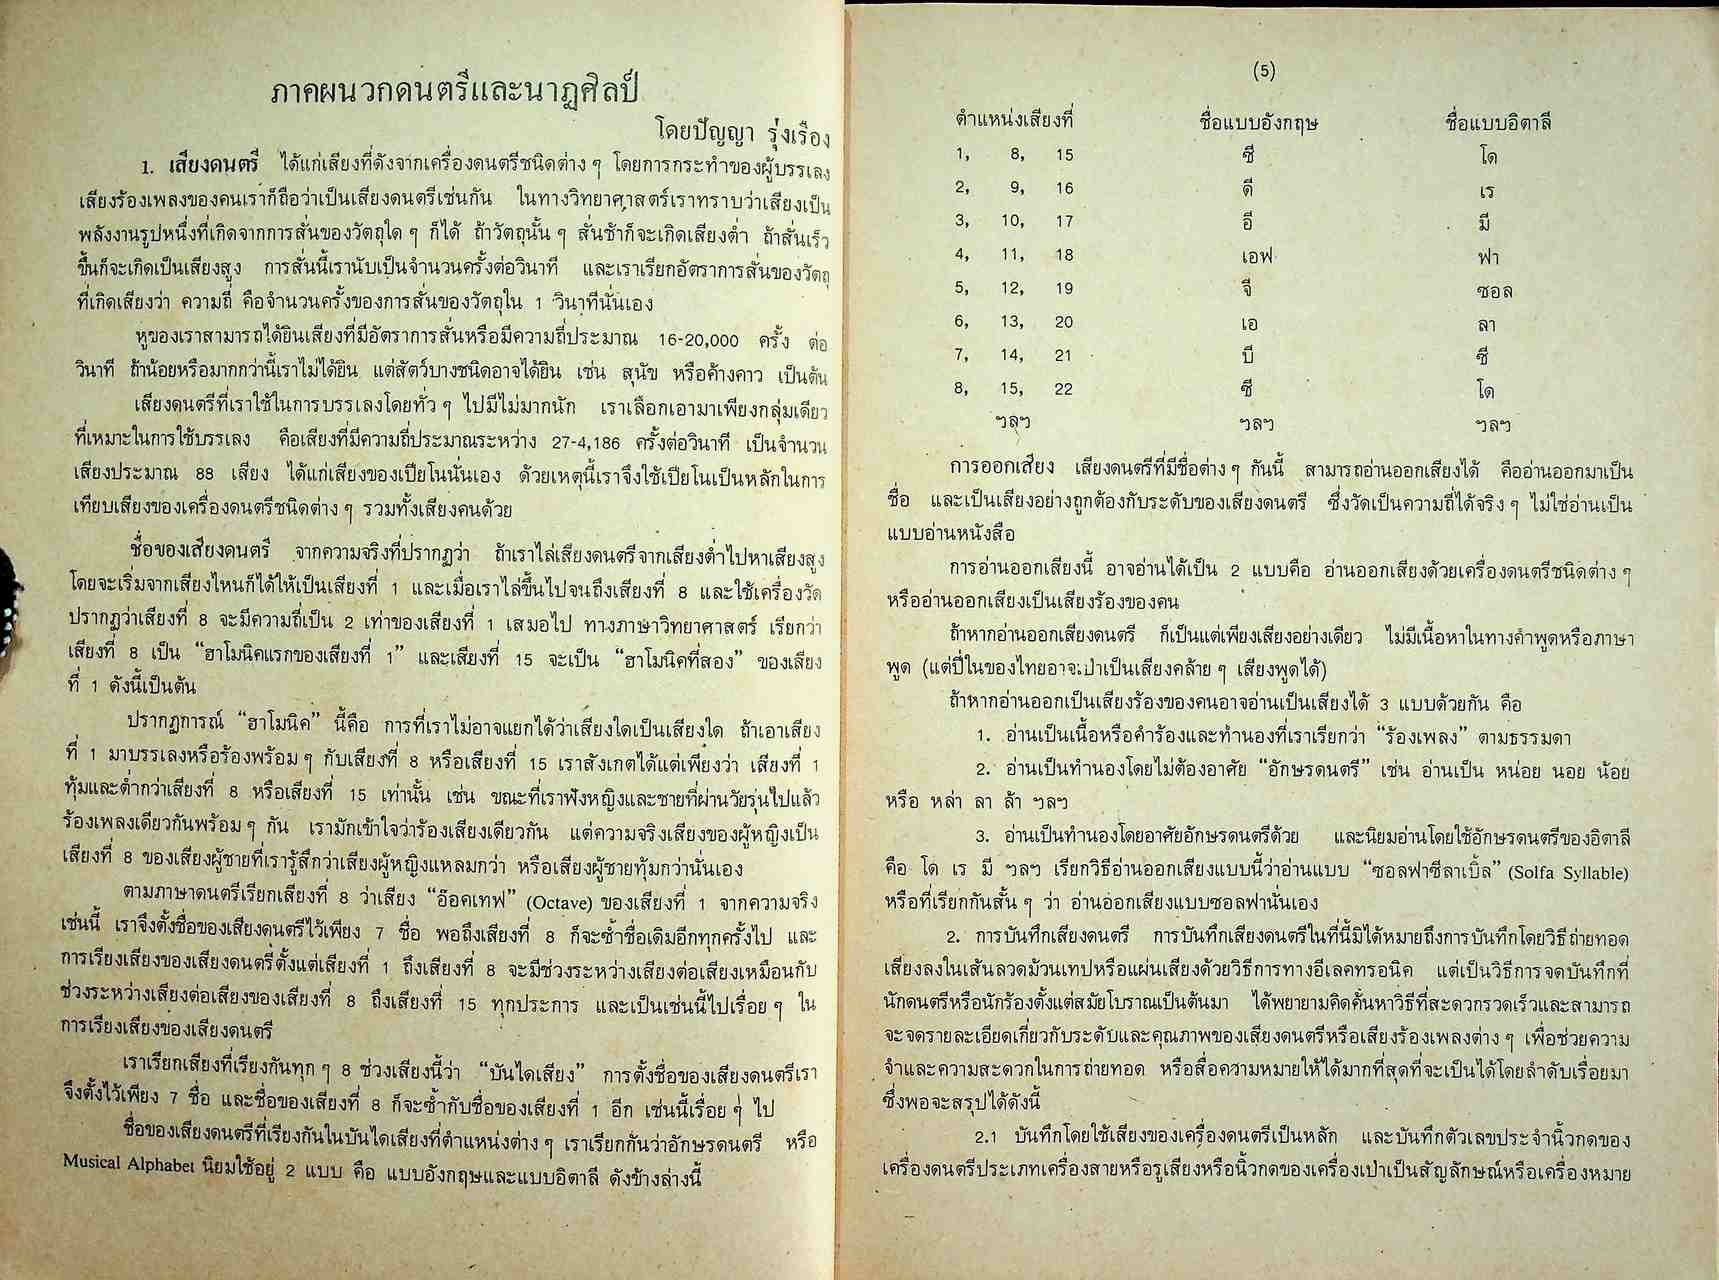 ภาคผนวกดนตรีและนาฏศิลป์
โดยปัญญา รุ่งเรือง
1. เสียงดนตรี ได้แก่เสียงที่ดังจากเครื่องดนตรีชนิดต่าง ๆ โดยการกระทำของผู้บรรเลง
เสียงร้องเพลงของคนเราก็ถือว่าเป็นเสียงดนตรีเช่นกัน ในทางวิทยาศาสตร์เราทราบว่าเสียงเป็น
พลังงานรูปหนึ่งที่เกิดจากการสั่นของวัตถุใด ๆ ก็ได้ ถ้าวัตถุนั้น ๆ สั่นช้าก็จะเกิดเสียงต่ำ ถ้าสั่นเร็ว
ขึ้นก็จะเกิดเป็นเสียงสูง การสั่นนี้เรานับเป็นจำนวนครั้งต่อวินาที และเราเรียกอัตราการสั่นของวัตถุ
ที่เกิดเสียงว่า ความถี่ คือจำนวนครั้งของการสั่นของวัตถุใน 1 วินาทีนั่นเอง
หูของเราสามารถได้ยินเสียงที่มีอัตราการสั่นหรือมีความถี่ประมาณ 16-20,000 ครั้ง ต่อ
วินาที ถ้าน้อยหรือมากกว่านี้เราไม่ได้ยิน แต่สัตว์บางชนิดอาจได้ยิน เช่น สุนัข หรือค้างคาว เป็นต้น
เสียงดนตรีที่เราใช้ในการบรรเลงโดยทั่ว ๆ ไปมีไม่มากนัก เราเลือกเอามาเพียงกลุ่มเดียว
ที่เหมาะในการใช้บรรเลง คือเสียงที่มีความถี่ประมาณระหว่าง 27-4,186 ครั้งต่อวินาที เป็นจำนวน
เสียงประมาณ 88 เสียง ได้แก่เสียงของเปียโนนั่นเอง ด้วยเหตุนี้เราจึงใช้เปียโนเป็นหลักในการ
เทียบเสียงของเครื่องดนตรีชนิดต่าง ๆ รวมทั้งเสียงคนด้วย
ชื่อของเสียงดนตรี จากความจริงที่ปรากฏว่า ถ้าเราไล่เสียงดนตรีจากเสียงต่ำไปหาเสียงสูง
โดยจะเริ่มจากเสียงไหนก็ได้ให้เป็นเสียงที่ 1 และเมื่อเราไล่ขึ้นไปจนถึงเสียงที่ 8 และใช้เครื่องวัด
ปรากฏว่าเสียงที่ 8 จะมีความถี่เป็น 2 เท่าของเสียงที่ 1 เสมอไป ทางภาษาวิทยาศาสตร์ เรียกว่า
เสียงที่ 8 เป็น “ฮาโมนิคแรกของเสียงที่ 1” และเสียงที่ 15 จะเป็น “ฮาโมนิคที่สอง” ของเสียง
ที่ 1 ดังนี้เป็นต้น
ปรากฏการณ์ “ฮาโมนิค” นี้คือ การที่เราไม่อาจแยกได้ว่าเสียงใดเป็นเสียงใด ถ้าเอาเสียง
ที่ 1 มาบรรเลงหรือร้องพร้อม ๆ กับเสียงที่ 8 หรือเสียงที่ 15 เราสังเกตได้แต่เพียงว่า เสียงที่ 1
ทุ้มและต่ำกว่าเสียงที่ 8 หรือเสียงที่ 15 เท่านั้น เช่น ขณะที่เราฟังหญิงและชายที่ผ่านวัยรุ่นไปแล้ว
ร้องเพลงเดียวกันพร้อม ๆ กัน เรามักเข้าใจว่าร้องเสียงเดียวกัน แต่ความจริงเสียงของผู้หญิงเป็น
เสียงที่ 8 ของเสียงผู้ชายที่เรารู้สึกว่าเสียงผู้หญิงแหลมกว่า หรือเสียงผู้ชายทุ้มกว่านั่นเอง
ตามภาษาดนตรีเรียกเสียงที่ 8 ว่าเสียง “อ๊อคเทฟ” (Octave) ของเสียงที่ 1 จากความจริง
เช่นนี้ เราจึงตั้งชื่อของเสียงดนตรีไว้เพียง 7 ชื่อ พอถึงเสียงที่ 8 ก็จะซ้ำชื่อเดิมอีกทุกครั้งไป และ
การเรียงเสียงของเสียงดนตรีตั้งแต่เสียงที่ 1 ถึงเสียงที่ 8 จะมีช่วงระหว่างเสียงต่อเสียงเหมือนกับ
ช่วงระหว่างเสียงต่อเสียงของเสียงที่ 8 ถึงเสียงที่ 15 ทุกประการ และเป็นเช่นนี้ไปเรื่อย ๆ ใน
การเรียงเสียงของเสียงดนตรี
เราเรียกเสียงที่เรียงกันทุก ๆ 8 ช่วงเสียงนี้ว่า “บันไดเสียง” การตั้งชื่อของเสียงดนตรีเรา
จึงตั้งไว้เพียง 7 ชื่อ และชื่อของเสียงที่ 8 ก็จะซ้ำกับชื่อของเสียงที่ 1 อีก เช่นนี้เรื่อย ๆ ไป
ชื่อของเสียงดนตรีที่เรียงกันในบันไดเสียงที่ตำแหน่งต่าง ๆ เราเรียกกันว่าอักษรดนตรี หรือ
Musical Alphabet นิยมใช้อยู่ 2 แบบ คือ แบบอังกฤษและแบบอิตาลี ดังข้างล่างนี้
(5)
ตำแหน่งเสียงที่ ชื่อแบบอังกฤษ ชื่อแบบอิตาลี
1, 8, 15 ซี โด
2, 9, 16 ดี เร
3, 10, 17 อี มี
4, 11, 18 เอฟ ฟา
5, 12, 19 จี ซอล
6, 13, 20 เอ ลา
7, 14, 21 บี ซี
8, 15, 22 ซี โด
ฯลฯ ฯลฯ ฯลฯ
การออกเสียง เสียงดนตรีที่มีชื่อต่าง ๆ กันนี้ สามารถอ่านออกเสียงได้ คืออ่านออกมาเป็น
ชื่อ และเป็นเสียงอย่างถูกต้องกับระดับของเสียงดนตรี ซึ่งวัดเป็นความถี่ได้จริง ๆ ไม่ใช่อ่านเป็น
แบบอ่านหนังสือ
การอ่านออกเสียงนี้ อาจอ่านได้เป็น 2 แบบคือ อ่านออกเสียงด้วยเครื่องดนตรีชนิดต่าง ๆ
หรืออ่านออกเสียงเป็นเสียงร้องของคน
ถ้าหากอ่านออกเสียงดนตรี ก็เป็นแต่เพียงเสียงอย่างเดียว ไม่มีเนื้อหาในทางคำพูดหรือภาษา
พูด (แต่ปี่ในของไทยอาจะเป่าเป็นเสียงคล้าย ๆ เสียงพูดได้)
ถ้าหากอ่านออกเป็นเสียงร้องของคนอาจอ่านเป็นเสียงได้ 3 แบบด้วยกัน คือ
1. อ่านเป็นเนื้อหรือคำร้องและทำนองที่เราเรียกว่า “ร้องเพลง” ตามธรรมดา
2. อ่านเป็นทำนองโดยไม่ต้องอาศัย “อักษรดนตรี” เช่น อ่านเป็น หน่อย นอย น้อย
หรือ หล่า ลา ล้า ฯลฯ
3. อ่านเป็นทำนองโดยอาศัยอักษรดนตรีด้วย และนิยมอ่านโดยใช้อักษรดนตรีของอิตาลี
คือ โด เร มี ฯลฯ เรียกวิธีอ่านออกเสียงแบบนี้ว่าอ่านแบบ “ซอลฟาซีลาเบิ้ล” (Solfa Syllable)
หรือที่เรียกกันสั้น ๆ ว่า อ่านออกเสียงแบบซอลฟานั่นเอง
2. การบันทึกเสียงดนตรี การบันทึกเสียงดนตรีในที่นี้มิได้หมายถึงการบันทึกโดยวิธีถ่ายทอด
เสียงลงในเส้นลวดม้วนเทปหรือแผ่นเสียงด้วยวิธีการทางอีเลคทรอนิค แต่เป็นวิธีการจดบันทึกที่
นักดนตรีหรือนักร้องตั้งแต่สมัยโบราณเป็นต้นมา ได้พยายามคิดค้นหาวิธีที่สะดวกรวดเร็วและสามารถ
จะจดรายละเอียดเกี่ยวกับระดับและคุณภาพของเสียงดนตรีหรือเสียงร้องเพลงต่าง ๆ เพื่อช่วยความ
จำและความสะดวกในการถ่ายทอด หรือสื่อความหมายให้ได้มากที่สุดที่จะเป็นได้โดยลำดับเรื่อยมา
ซึ่งพอจะสรุปได้ดังนี้
2.1 บันทึกโดยใช้เสียงของเครื่องดนตรีเป็นหลัก และบันทึกตัวเลขประจำนิ้วกดของ
เครื่องดนตรีประเภทเครื่องสายหรือรูเสียงหรือนิ้วกดของเครื่องเป่าเป็นสัญลักษณ์หรือเครื่องหมาย